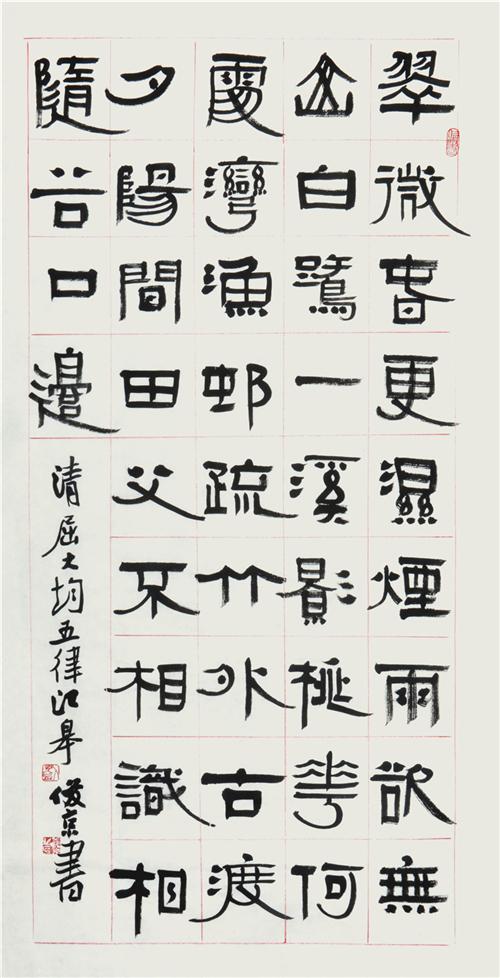 翠微春更濕煙雨欲無
山白鷺一溪影桃花何
處灣漁邨疏竹外古渡
夕陽間田父不相識相
隨谷口邊
清屈大均五律江皋 俊京書